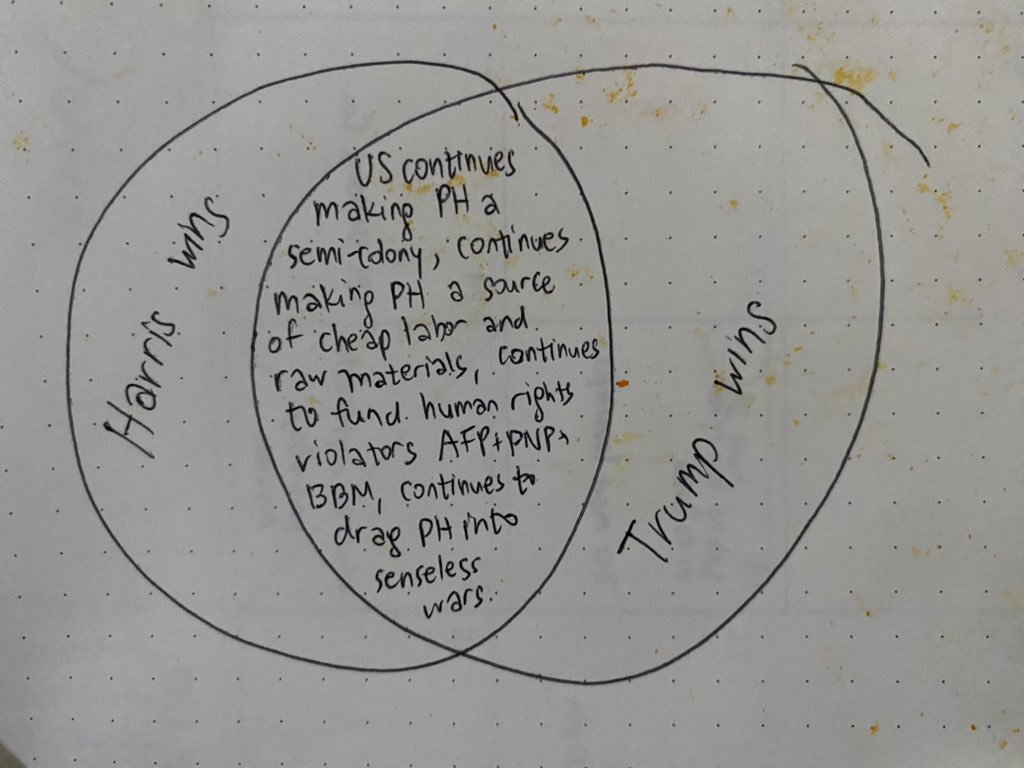 Harris wins
US continues
making PH a
semi-colony, continues
making PH a source
of cheap labor and
raw materials, continues
to fund human rights
violators AFP+PNP+
BBM, continues to
drag PH into
senseless
wars.
Trump wins